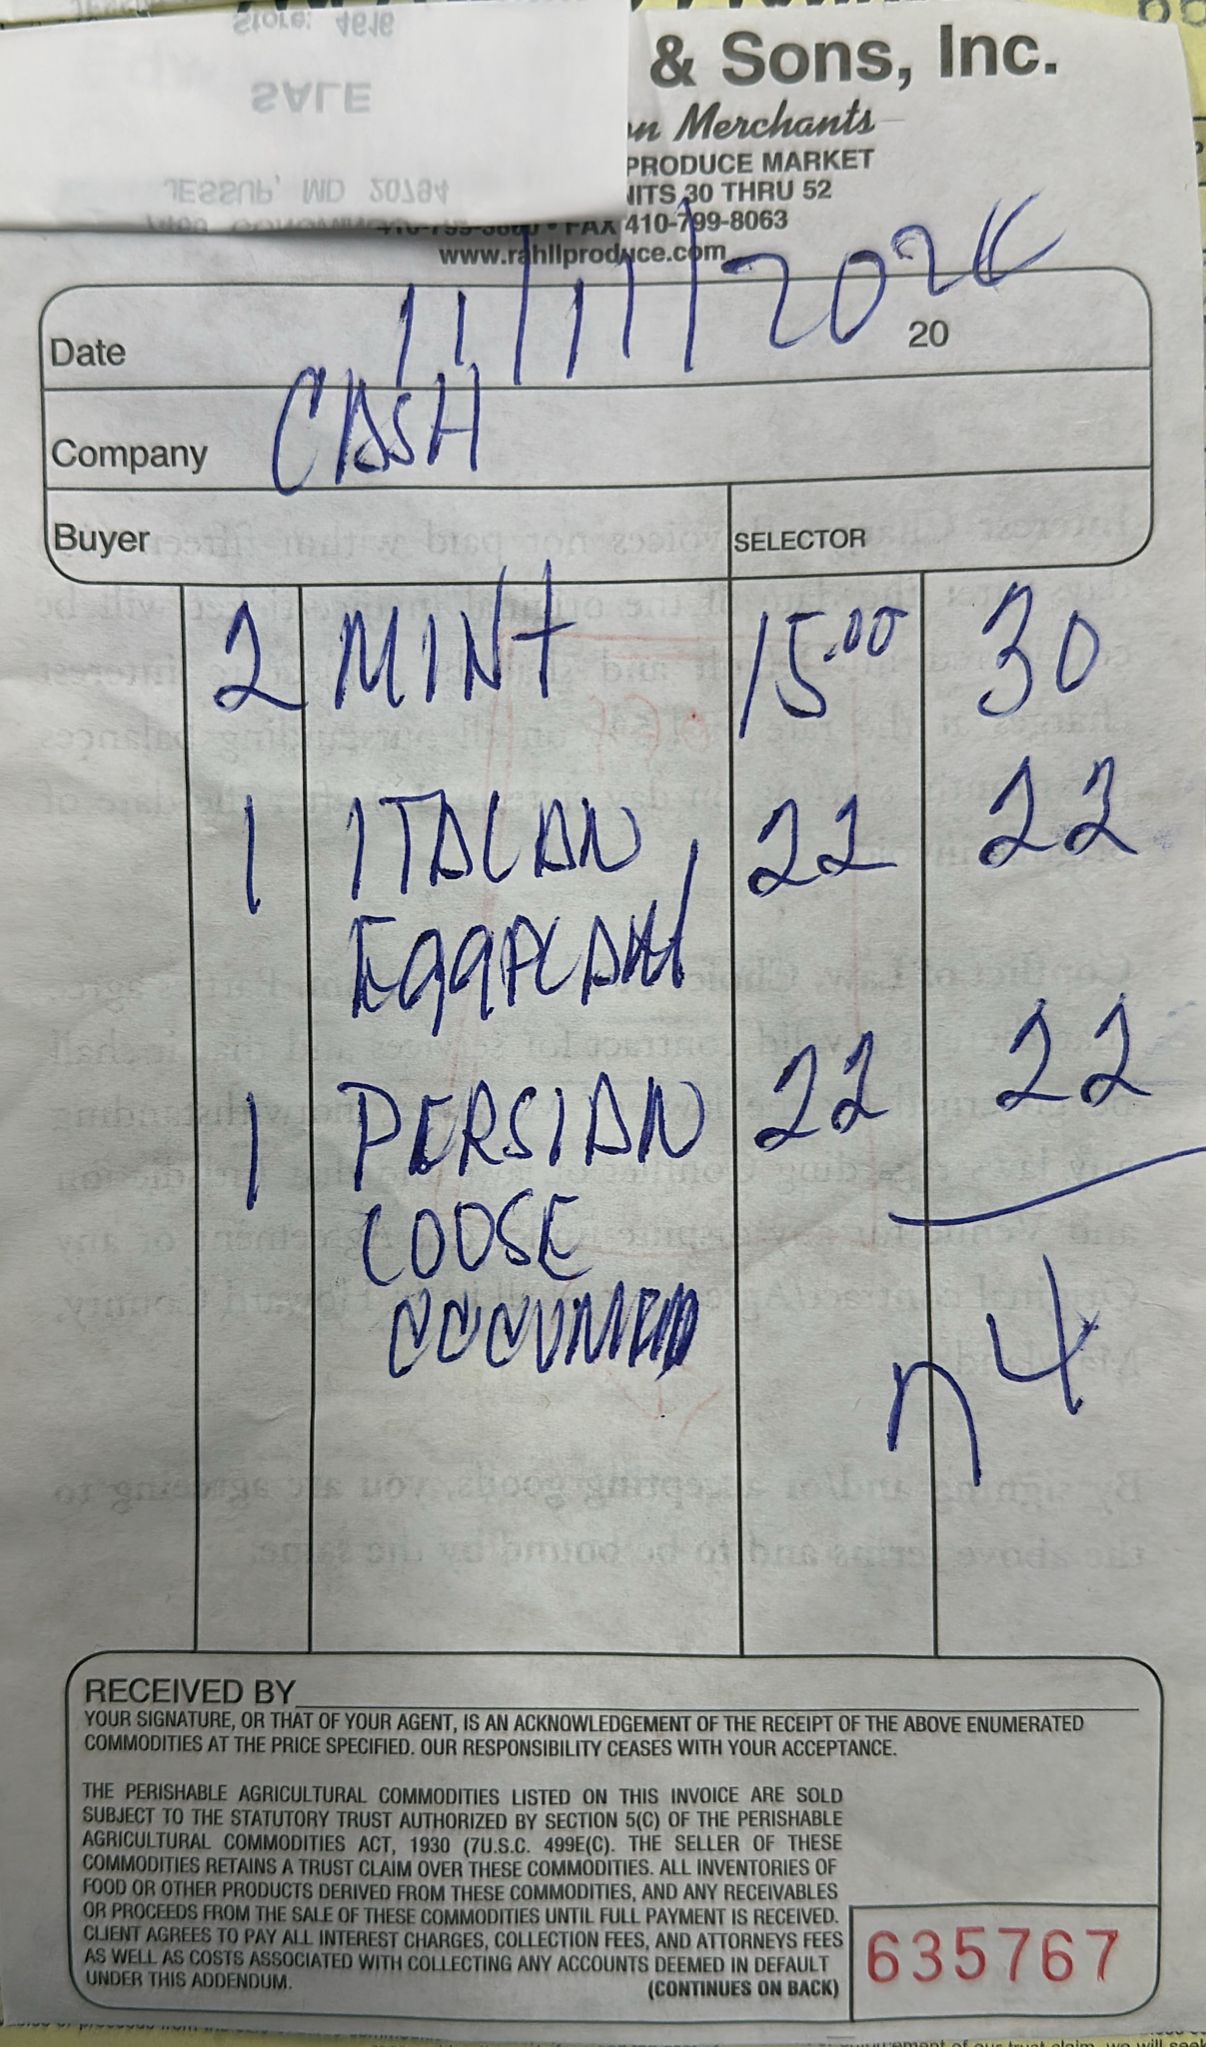 Store: 4616
SALE
JESSUP, MD 20794
& Sons, Inc.
Merchants
PRODUCE MARKET
30 THRU 52
FAX 410-799-8063
www.rahllproduce.com
Date 11/11/202 20
Company CASH
Buyer SELECTOR
2 MINt 15.00 30
1 ITALIAN 22 22
EggPLANt
1 PERSIAN 22 22
LOOSE
74
RECEIVED BY
YOUR SIGNATURE, OR THAT OF YOUR AGENT, IS AN ACKNOWLEDGEMENT OF THE RECEIPT OF THE ABOVE ENUMERATED
COMMODITIES AT THE PRICE SPECIFIED. OUR RESPONSIBILITY CEASES WITH YOUR ACCEPTANCE.
THE PERISHABLE AGRICULTURAL COMMODITIES LISTED ON THIS INVOICE ARE SOLD
SUBJECT TO THE STATUTORY TRUST AUTHORIZED BY SECTION 5(C) OF THE PERISHABLE
AGRICULTURAL COMMODITIES ACT, 1930 (7U.S.C. 499E(C). THE SELLER OF THESE
COMMODITIES RETAINS A TRUST CLAIM OVER THESE COMMODITIES. ALL INVENTORIES OF
FOOD OR OTHER PRODUCTS DERIVED FROM THESE COMMODITIES, AND ANY RECEIVABLES
OR PROCEEDS FROM THE SALE OF THESE COMMODITIES UNTIL FULL PAYMENT IS RECEIVED.
CLIENT AGREES TO PAY ALL INTEREST CHARGES, COLLECTION FEES, AND ATTORNEYS FEES
AS WELL AS COSTS ASSOCIATED WITH COLLECTING ANY ACCOUNTS DEEMED IN DEFAULT
UNDER THIS ADDENDUM. (CONTINUES ON BACK)
635767